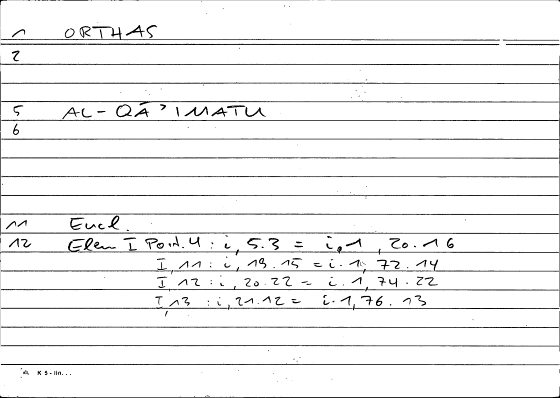 1 ORTHAS
2
5 AL-QĀʾIMATU
6
11 Eucl.
12 Elem I Post. 4 : i, 5.3 = i, 1, 20.16
I, 11 : i, 19.15 = i. 1, 72.14
I, 12 : i, 20.22 = i. 1, 74.22
I, 13 : i, 21.12 = i. 1, 76.13
K 5 - lin...